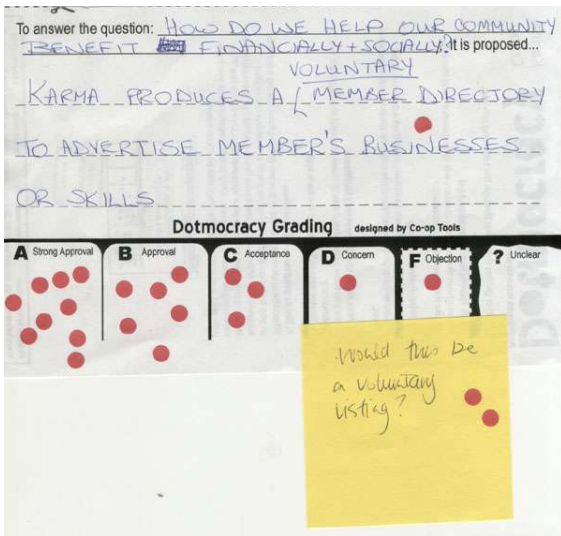 To answer the question: HOW DO WE HELP OUR COMMUNITY
BENEFIT FINANCIALLY + SOCIALLY? It is proposed...
VOLUNTARY
KARMA PRODUCES A MEMBER DIRECTORY
TO ADVERTISE MEMBER'S BUSINESSES
OR SKILLS
Dotmocracy Grading designed by Co-op Tools
A Strong Approval B Approval C Acceptance D Concern F Objection ? Unclear
Would this be
a voluntary
listing?